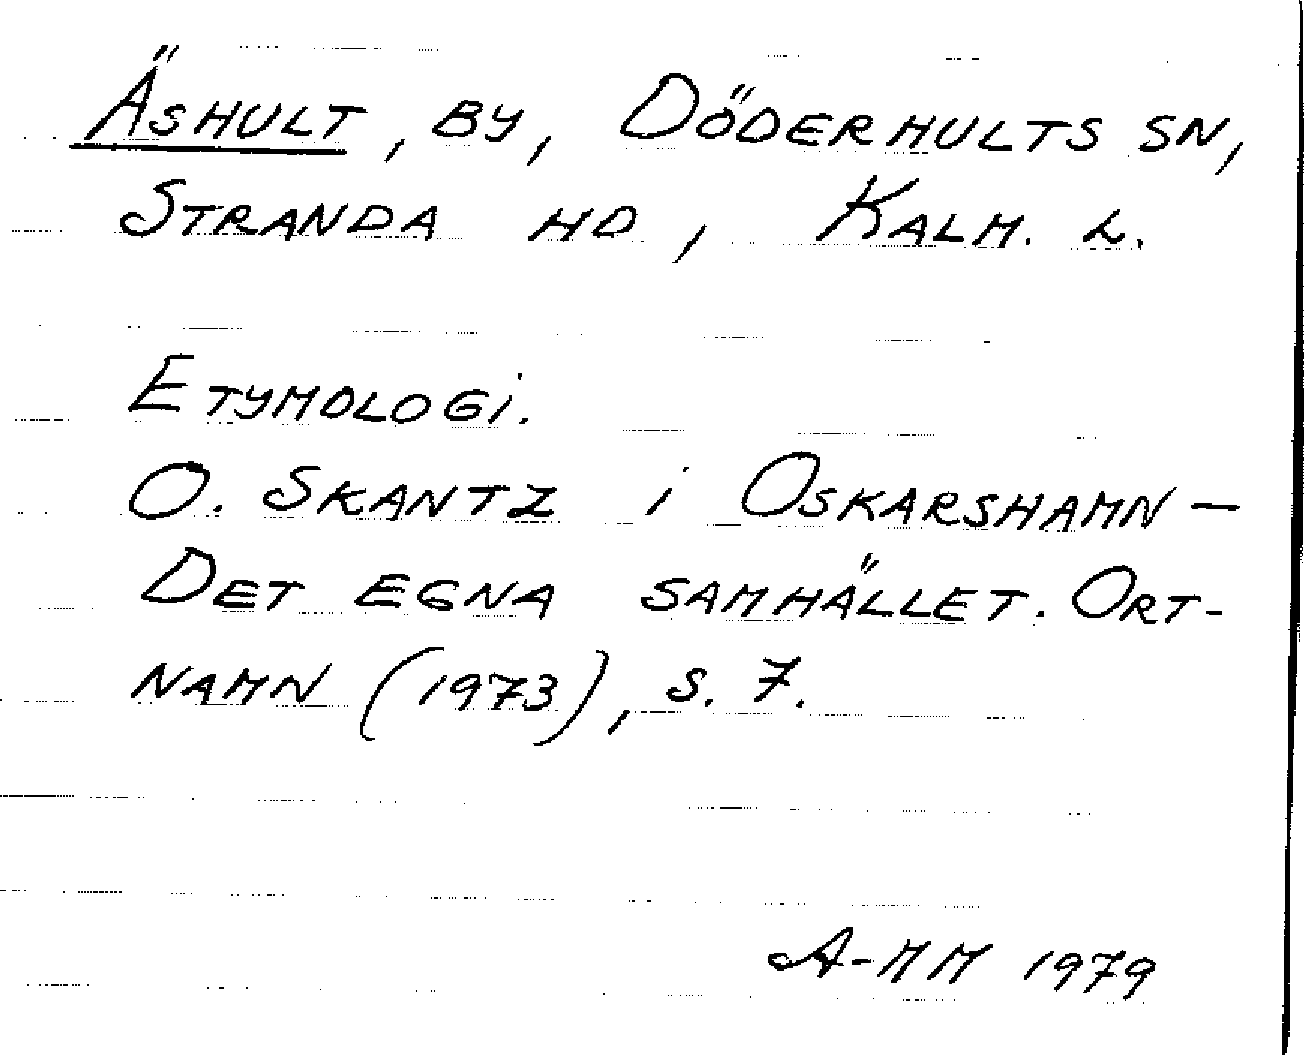 ÄSHULT, BY, DÖDERHULTS SN,
STRANDA HD, KALM. L.
ETYMOLOGI.
O. SKANTZ i OSKARSHAMN –
DET EGNA SAMHÄLLET. ORT-
NAMN (1973), S. 7.
A-MM 1979